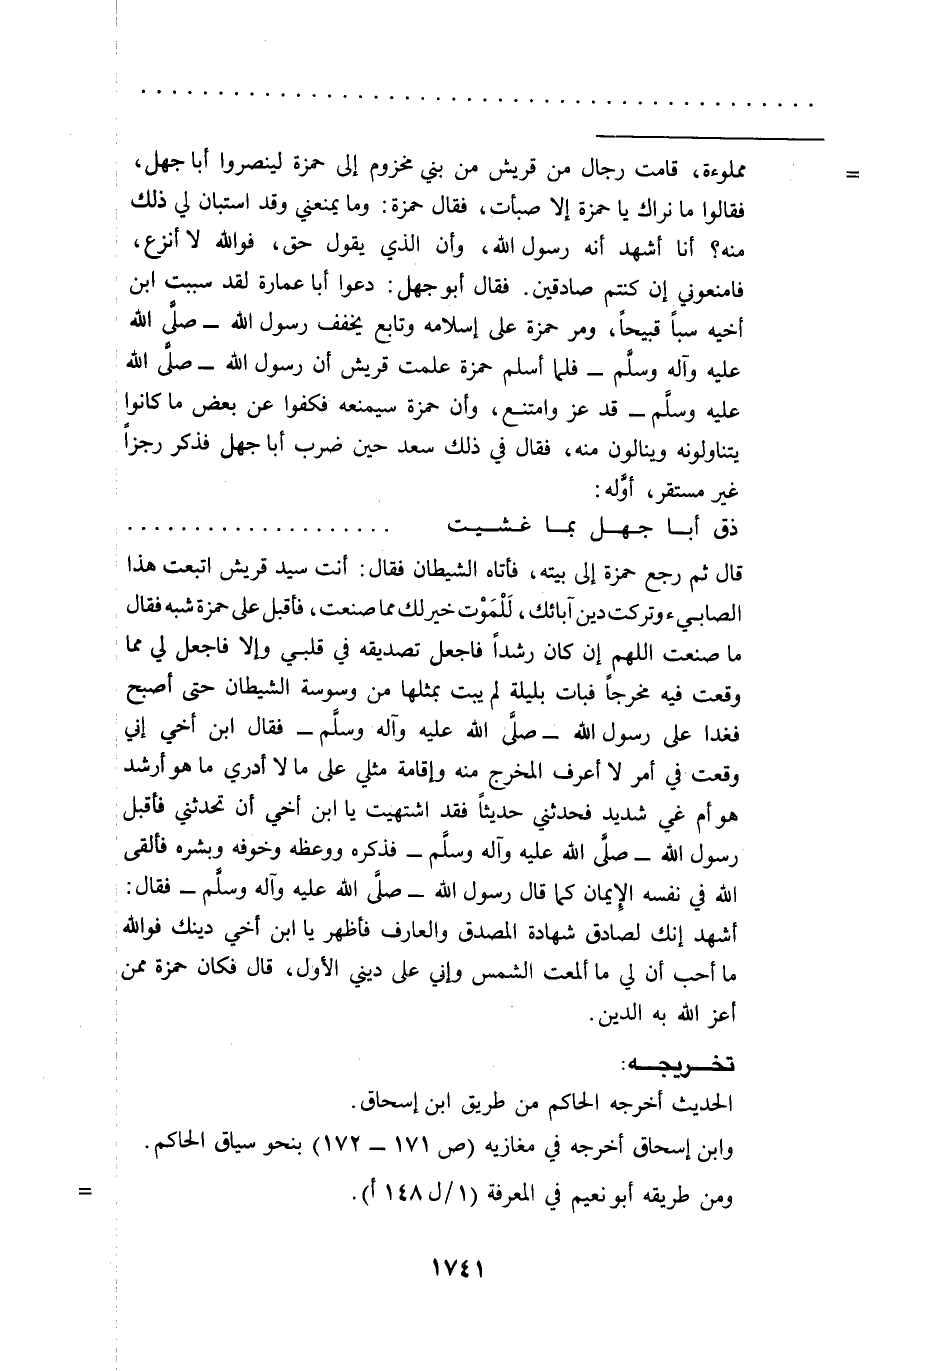 . . . . . . . . . . . . . . . . . . . . . . . . . . . . . . . . . . . . . . . . . . .
= مملوءة، قامت رجال من قريش من بني مخزوم إلى حمزة لينصروا أبا جهل،
فقالوا ما نراك يا حمزة إلا صبأت، فقال حمزة: وما يمنعني وقد استبان لي ذلك
منه؟ أنا أشهد أنه رسول الله، وأن الذي يقول حق، فوالله لا أنزع،
فامنعوني إن كنتم صادقين. فقال أبو جهل: دعوا أبا عمارة لقد سببت ابن
أخيه سباً قبيحاً، ومر حمزة على إسلامه وتابع يخفف رسول الله ــ صلَّى الله
عليه وآله وسلَّم ــ فلما أسلم حمزة علمت قريش أن رسول الله ــ صلَّى الله
عليه وسلَّم ــ قد عز وامتنع، وأن حمزة سيمنعه فكفوا عن بعض ما كانوا
يتناولونه وينالون منه، فقال في ذلك سعد حين ضرب أبا جهل فذكر رجزاً
غير مستقر، أوَّله:
ذق أبا جهل بما غشيت . . . . . . . . . . . . . . . . . . .
قال ثم رجع حمزة إلى بيته، فأتاه الشيطان فقال: أنت سيد قريش اتبعت هذا
الصابيء وتركت دين آبائك، لَلْمَوْت خير لك مما صنعت، فأقبل على حمزة شبه فقال
ما صنعت اللهم إن كان رشداً فاجعل تصديقه في قلبي وإلا فاجعل لي مما
وقعت فيه مخرجاً فبات بليلة لم يبت بمثلها من وسوسة الشيطان حتى أصبح
فغدا على رسول الله ــ صلَّى الله عليه وآله وسلَّم ــ فقال ابن أخي إني
وقعت في أمر لا أعرف المخرج منه وإقامة مثلي على ما لا أدري ما هو أرشد
هو أم غي شديد فحدثني حديثاً فقد اشتهيت يا ابن أخي أن تحدثني فأقبل
رسول الله ــ صلَّى الله عليه وآله وسلَّم ــ فذكره ووعظه وخوفه وبشره فألقى
الله في نفسه الإيمان كما قال رسول الله ــ صلَّى الله عليه وآله وسلَّم ــ فقال:
أشهد إنك لصادق شهادة المصدق والعارف فأظهر يا ابن أخي دينك فوالله
ما أحب أن لي ما ألمعت الشمس وإني على ديني الأول، قال فكان حمزة ممن
أعز الله به الدين.
تخريجه:
الحديث أخرجه الحاكم من طريق ابن إسحاق.
وابن إسحاق أخرجه في مغازيه (ص ١٧١ ــ ١٧٢) بنحو سياق الحاكم.
ومن طريقه أبو نعيم في المعرفة (١/ل ١٤٨ أ). =
١٧٤١